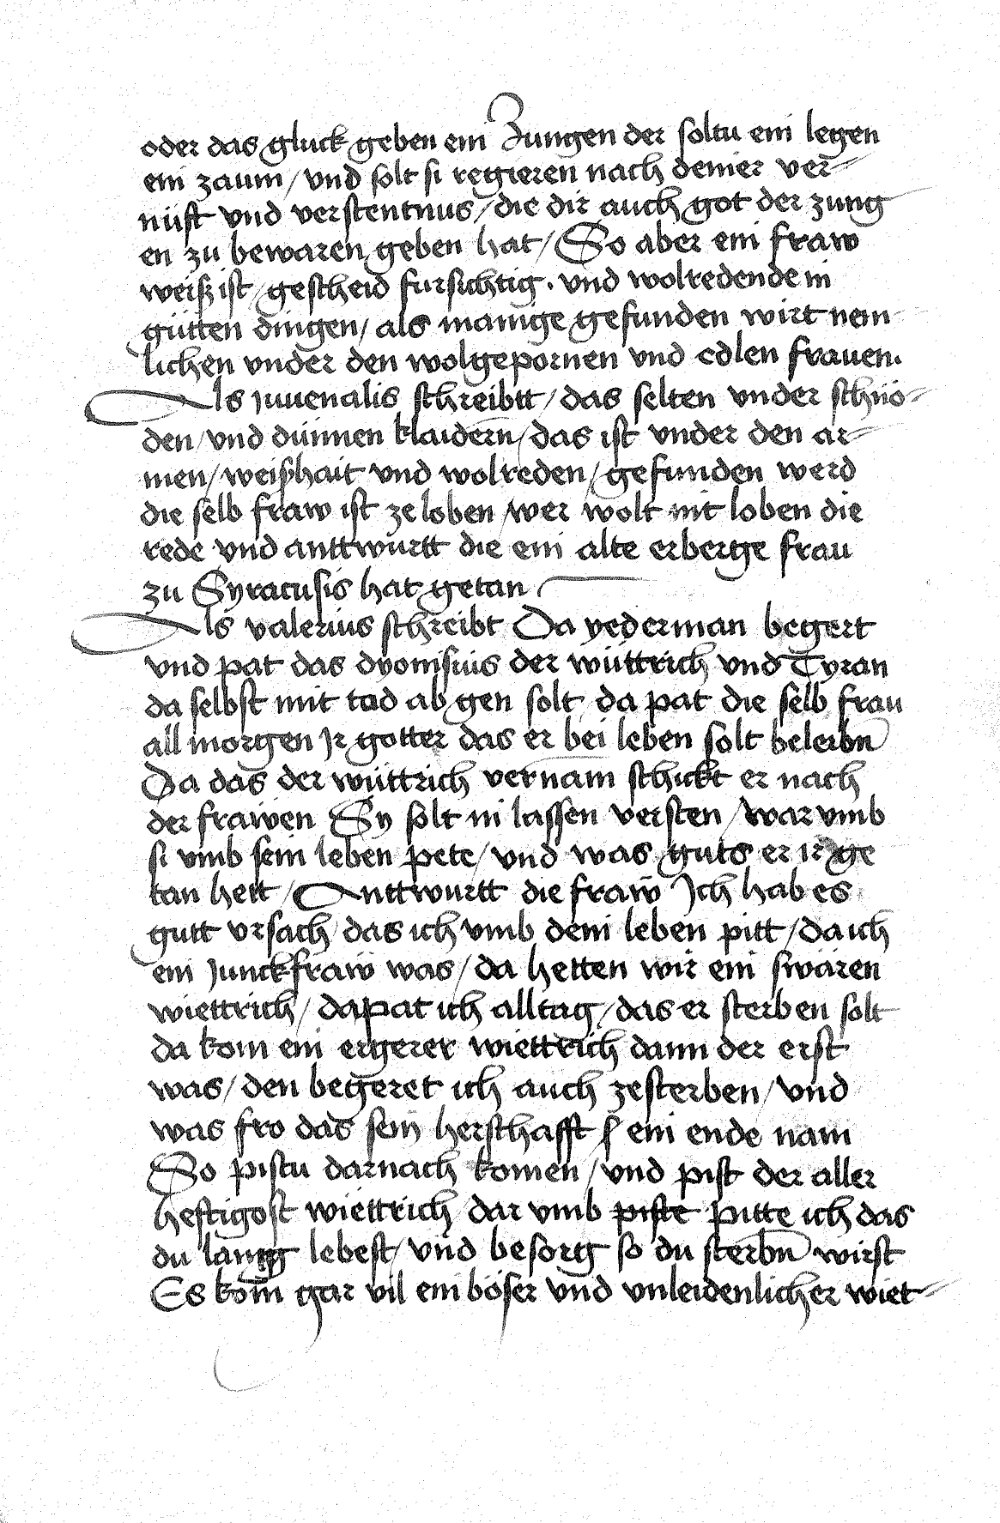 oder das gluck geben ein Zungen der soltu ein legen
ein zaum / vnd solt si regieren nach deiner ver-
nüft vnd verstentnus / die dir auch got der zung
en zu bewaren geben hat / So aber ein fraw
weisz ist / gescheid fursichtig . vnd wolredende in
gütten dingen / als manige gefunden wirt nem-
lichen vnder den wolgepornen vnd edlen frauen.
Als Juuenalis schreibtt / das selten vnder schnö-
den / vnd dünnen klaidern / das ist vnder den ar-
men / weißhait vnd wolreden / gefunden werd
die selb fraw ist ze loben / wer wolt nit loben die
rede vnd anttwurtt die ein alte erberge frau
zu Syracusis hat getan
Als valerius schreibt Da yederman begert
vnd pat das dyonisius der wüttrich vnd Tyran
da selbst mit tod ab gen solt / da pat die selb frau
all morgen Jr gotter das er bei leben solt beleibn
Da das der wüttrich vernam schickt er nach
der frawen Sy solt in lassen versten / war vmb
si vmb sein leben pete / vnd was guts er ir ge
tan hett / Anttwurtt die fraw Jch hab es
gutt vrsach / das ich vmb dein leben pitt / da ich
ein Junckfraw was / da hetten wir ein swären
wiettrich / da pat ich alltag / das er sterben solt
da kom ein ergerer wiettrich dann der erst
was / den begeret ich auch zesterben / vnd
was fro das sein herschafft ein ende nam
So pistu darnach komen / vnd pist der aller
heftigost wiettrich dar vmb piste pitte ich das
du lanng lebest / vnd besorg so du sterbn wirst
Es kom gar vil ein böser vnd vnleidenlicher wiet-